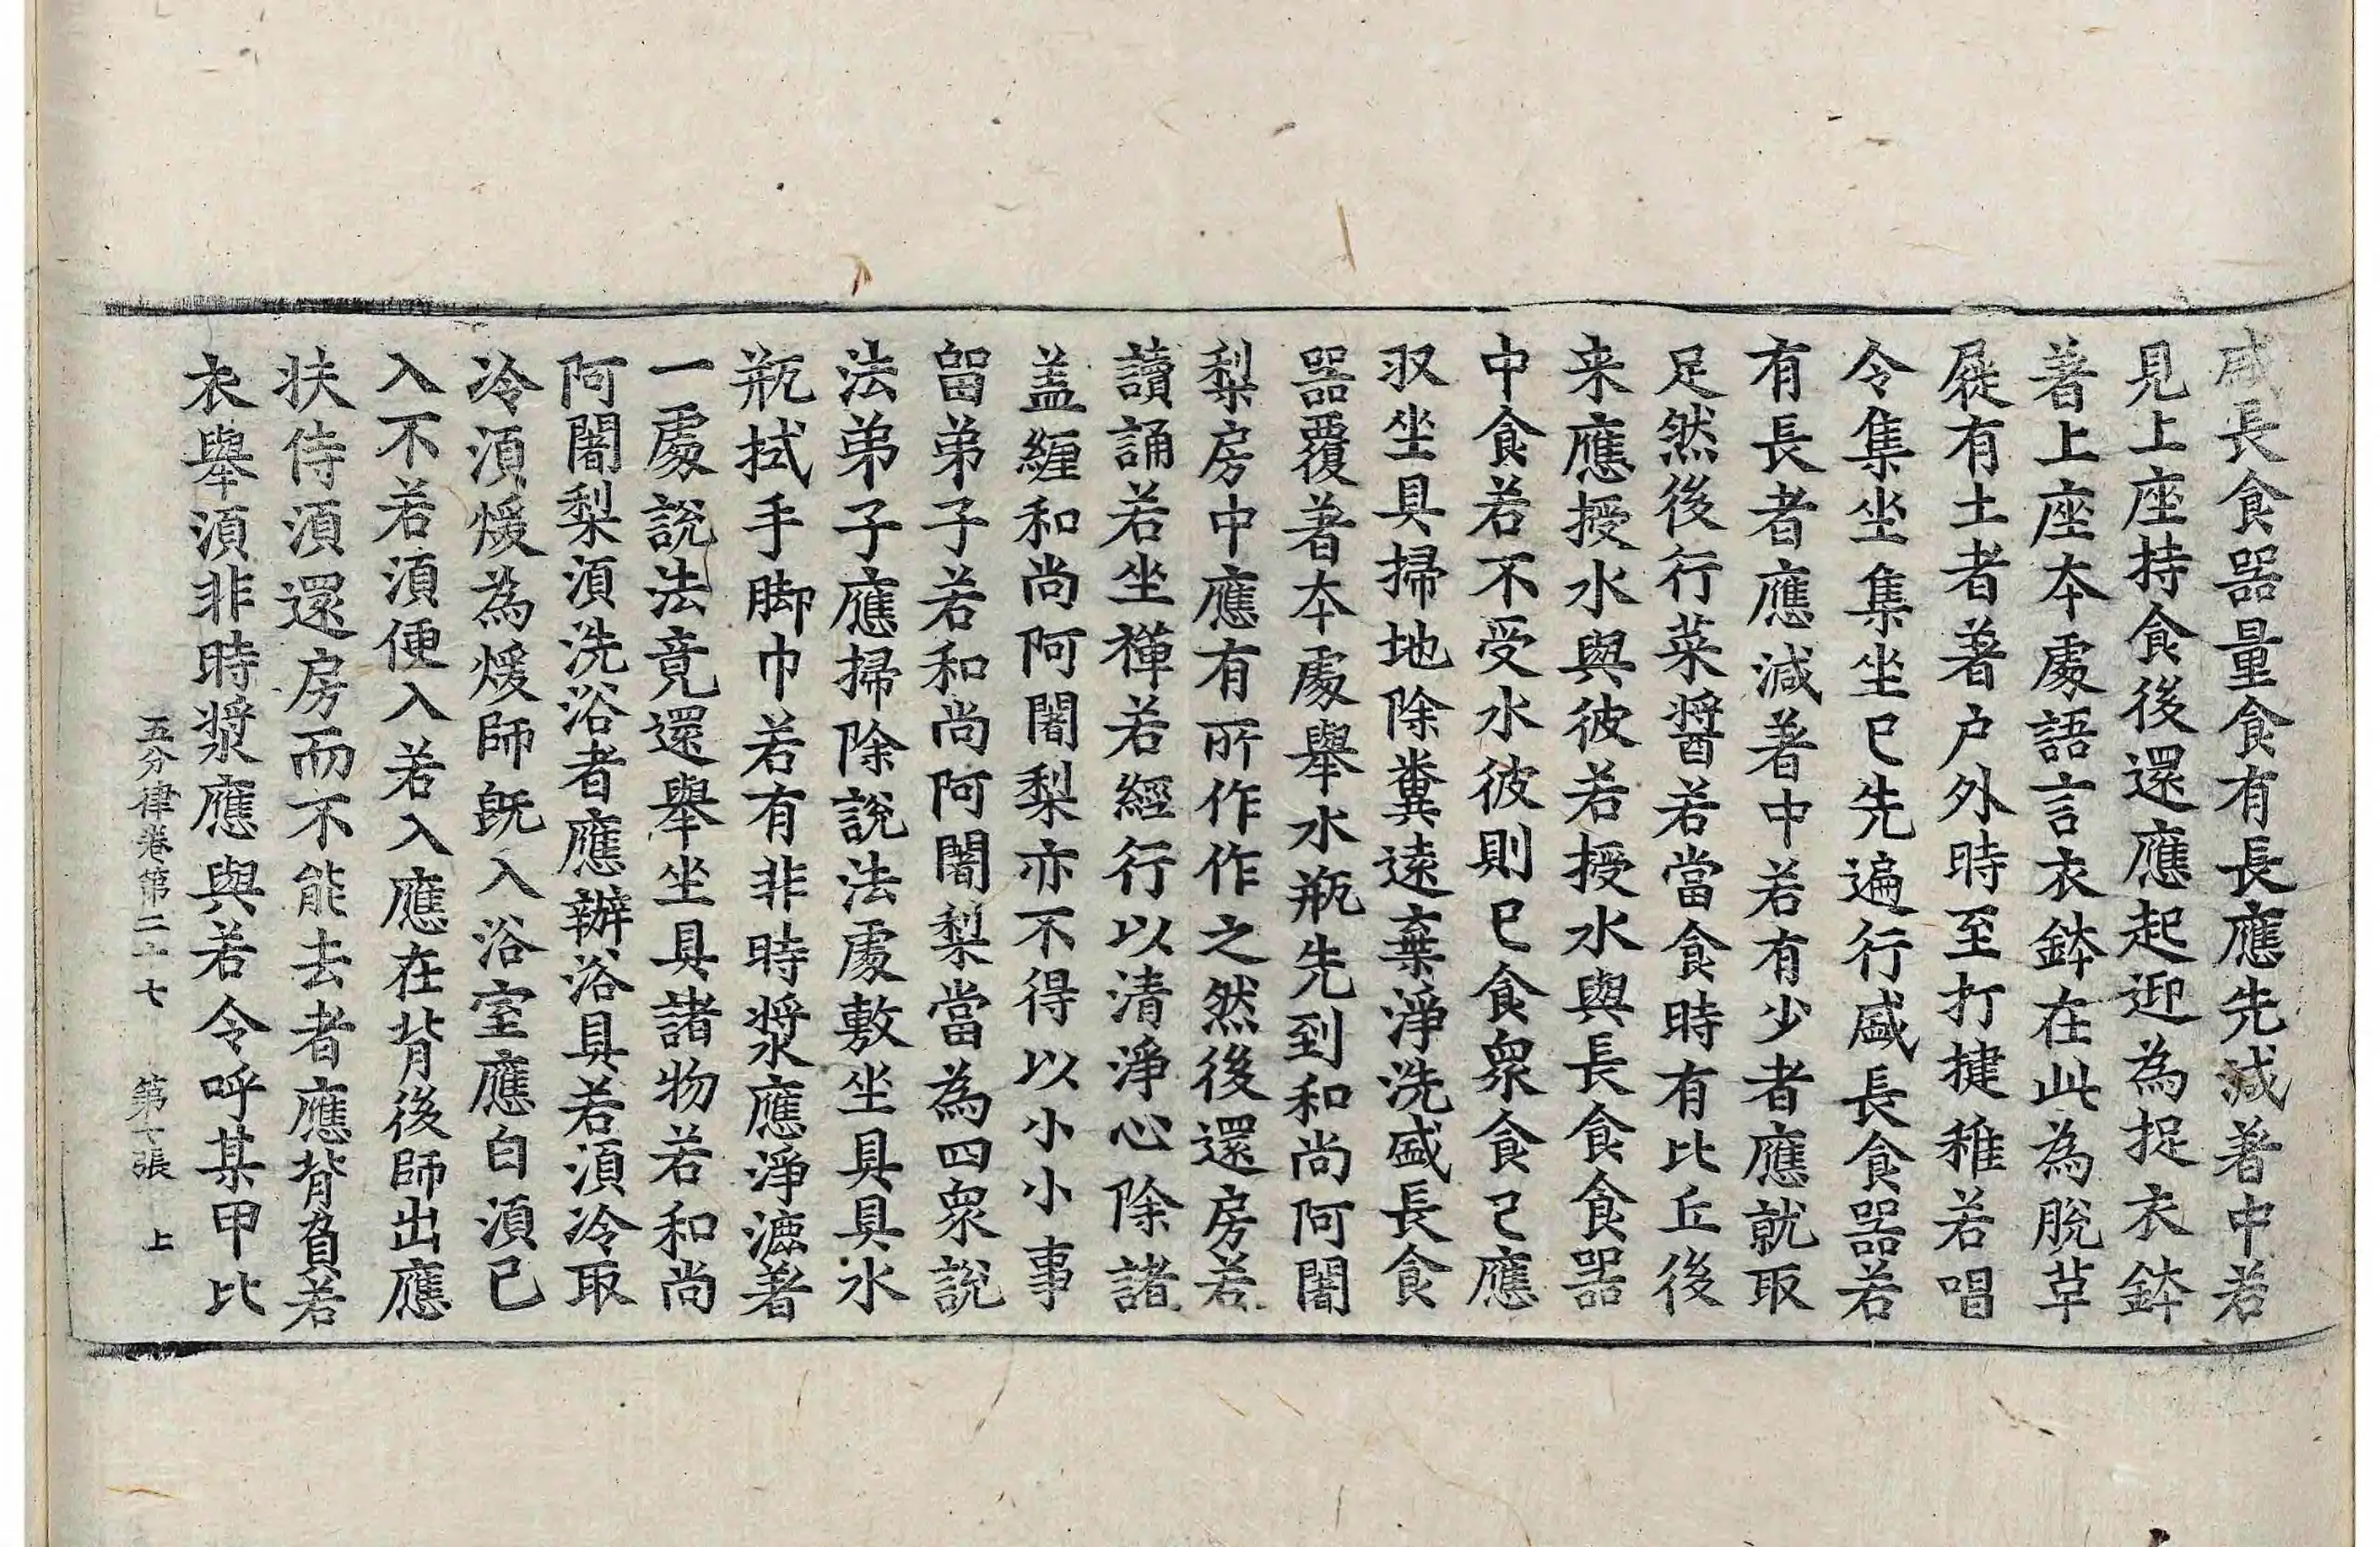 盛長食器量食有長應先減著中若
見上座持食後還應起迎為捉衣鉢
著上座本處語言衣鉢在此為脫草
屣有土者著户外時至打揵稚若唱
令集坐集坐已先遍行盛長食器若
有長者應減著中若有少者應就取
足然後行菜醬若當食時有比丘後
来應授水與彼若授水與長食食器
中食若不受水彼則已食衆食已應
収坐具掃地除糞遠棄淨洗盛長食
器覆著本處舉水瓶先到和尚阿闍
梨房中應有所作作之然後還房若
讀誦若坐禪若經行以清淨心除諸
盖纏和尚阿闍梨亦不得以小小事
留弟子若和尚阿闍梨當為四衆說
法弟子應掃除說法處敷坐具具水
瓶拭手脚巾若有非時漿應淨漉著
一處說法竟還舉坐具諸物若和尚
阿闍梨湏洗浴者應辦浴具若湏冷取
冷湏煖為煖師既入浴室應白湏已
入不若湏便入若入應在背後師出應
扶侍湏還房而不能去者應背負若
衣舉湏非時漿應與若令呼某甲比
五分律卷第二十七 第十張 上